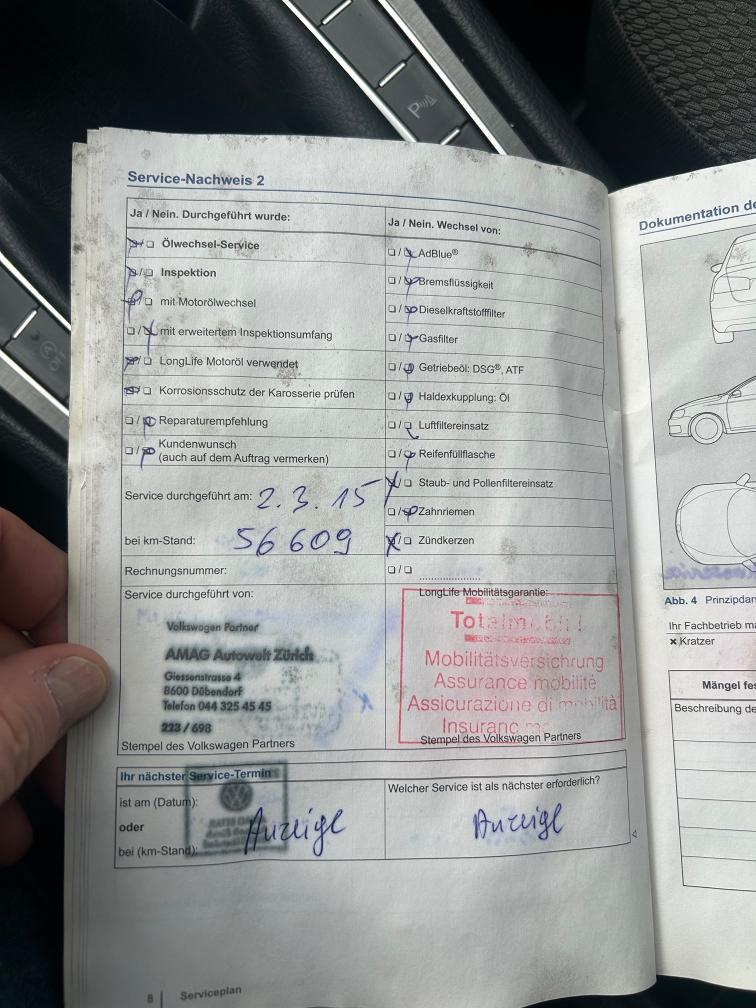 P
Service-Nachweis 2
Ja / Nein. Durchgeführt wurde:
Ölwechsel-Service
Inspektion
mit Motorölwechsel
mit erweitertem Inspektionsumfang
LongLife Motoröl verwendet
Korrosionsschutz der Karosserie prüfen
Reparaturempfehlung
Kundenwunsch
(auch auf dem Auftrag vermerken)
Ja / Nein. Wechsel von:
AdBlue®
Bremsflüssigkeit
Dieselkraftstofffilter
Gasfilter
Getriebeöl: DSG®, ATF
Haldexkupplung: Öl
Luftfiltereinsatz
Reifenfüllflasche
Staub- und Pollenfiltereinsatz
Zahnriemen
Zündkerzen
Service durchgeführt am: 2.3.15
bei km-Stand: 56 609
Rechnungsnummer:
Service durchgeführt von:
Volkswagen Partner
AMAG Autowelt Zürich
Giessenstrasse 4
8600 Dübendorf
Telefon 044 325 45 45
223 / 698
Stempel des Volkswagen Partners
LongLife Mobilitätsgarantie:
Mobilitätsversichrung
Assurance mobilité
Assicurazione di mobilità
Stempel des Volkswagen Partners
Ihr nächster Service-Termin
ist am (Datum):
oder
bei (km-Stand):
Anzeige
Welcher Service ist als nächster erforderlich?
Anzeige
8 | Serviceplan
Dokumentation
Abb. 4
Ihr Fachbetrieb
× Kratzer
Mängel
Beschreibung